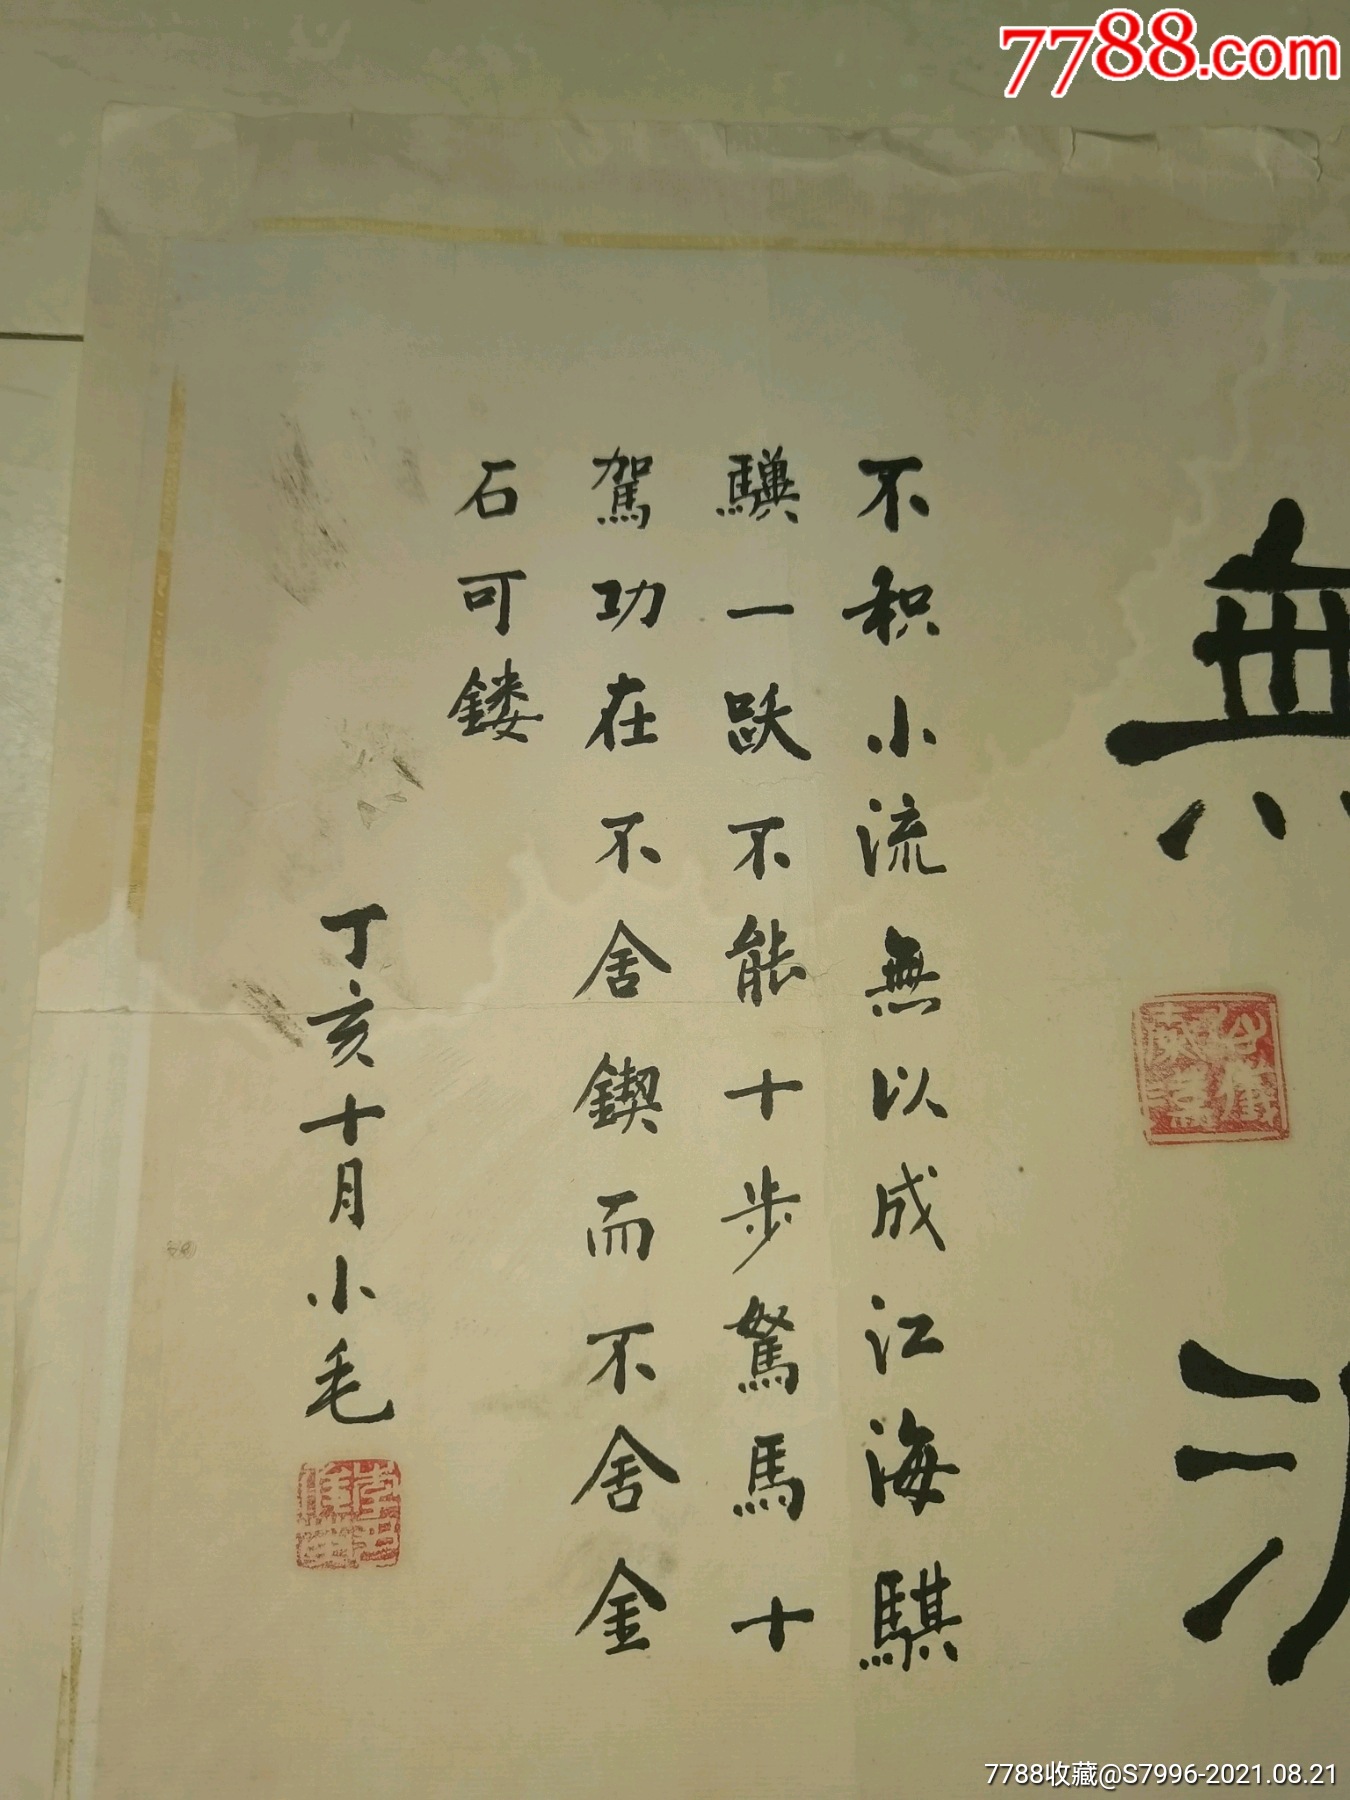 7788.com
無
不积小流無以成江海騏
驥一跃不能十步駑馬十
駕功在不舍鍥而不舍金
石可镂
丁亥十月小毛
7788收藏@S7996-2021.08.21